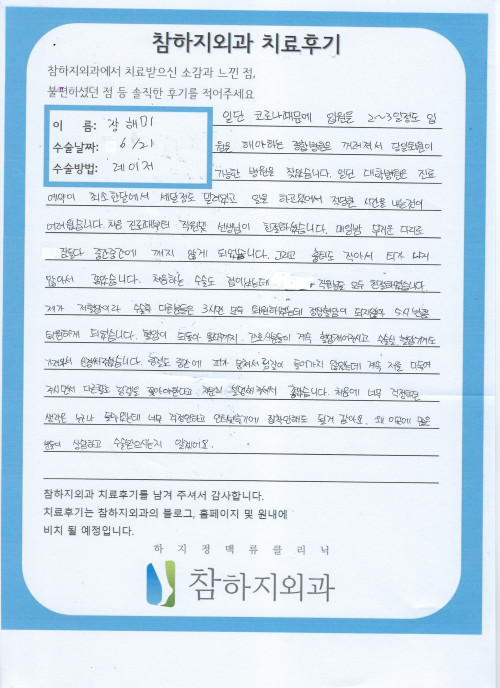 참하지외과 치료후기
참하지외과에서 치료받으신 소감과 느낀 점,
불편하셨던 점 등 솔직한 후기를 적어주세요
이 름: 장해미
수술날짜: 6/21
수술방법: 레이저
일단 코로나때문에 입원도 2~3일정도 입
원을 해야하는 종합병원은 꺼려져서 당일퇴원이
가능한 병원을 찾았습니다. 일단 대학병원은 진료
예약이 최소한달에서 세달정도 밀려있고 일을 하고있어서 적당한 시간을 내는것이
어려웠습니다. 처음 진료때부터 직원및 선생님이 친절하셨습니다. 매일밤 무거운 다리로
잠들다 중간중간에 깨지 않게 되었습니다. 그리고 흉터도 작아서 티가 나지
않아서 좋았습니다. 처음하는 수술도 겁이났는데 직원분들 모두 친절하셨습니다.
제가 저혈압이라 수술후 다른분들은 3시면 모두 퇴원하셨는데 정상혈압이 되지않아 5시 넘어
퇴원하게 되었습니다. 혈압이 돌아와 올때까지 간호사분들이 계속 혈압재어주시고
신경써주셨습니다. 중간에 피가 계속 저를
주시면서 다른팔로 꽂아야한다고 좋았습니다. 처음에 너무 걱정되는
너무 걱정안하고 될거 같아요. 왜 이곳에 많은
분들이 상담하고 수술받으시는지 알겠어요.
참하지외과 치료후기를 남겨 주셔서 감사합니다.
치료후기는 참하지외과의 블로그, 홈페이지 및 원내에
비치 될 예정입니다.
하지정맥류클리닉
참하지외과